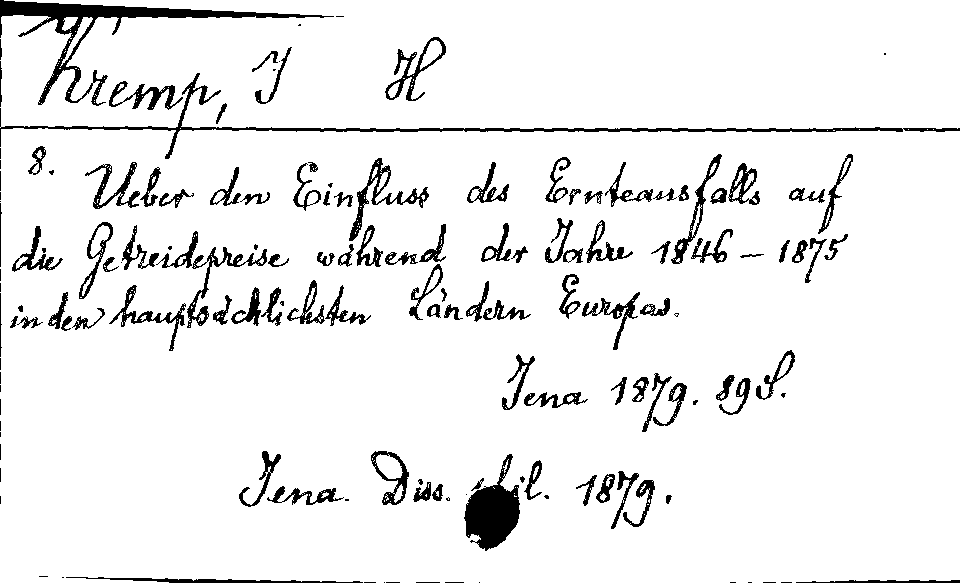 Kremp, J H
8. Ueber den Einfluss des Ernteausfalls auf
die Getreidepreise während der Jahre 1846 - 1875
in den hauptsächlichsten Ländern Europas.
Jena 1879. 89 S.
Jena. Diss. phil. 1879.